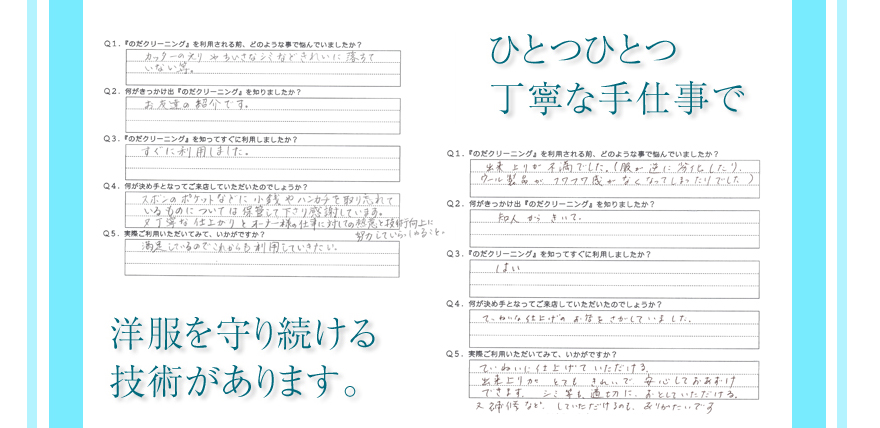 Q1.『のだクリーニング』を利用される前、どのような事で悩んでいましたか？
カッターのエリやちいさなシミなどきれいに落ちて
いない等。
Q2.何がきっかけ出『のだクリーニング』を知りましたか？
お友達の紹介です。
Q3.『のだクリーニング』を知ってすぐに利用しましたか？
すぐに利用しました。
Q4.何が決め手となってご来店していただいたのでしょうか？
ズボンのポケットなどに小銭やハンカチを取り忘れて
いるものについては保管して下さり感謝しています。
又丁寧な仕上がりとオーナー様の仕事に対しての熱意と技術向上に
努力していらっしゃること。
Q5.実際ご利用いただいてみて、いかがですか？
満足しているのでこれからも利用していきたい。
洋服を守り続ける
技術があります。
ひとつひとつ
丁寧な手仕事で
Q1.『のだクリーニング』を利用される前、どのような事で悩んでいましたか？
出来上りが不満でした。(服が逆に劣化したり、
ウール製品がフワフワ感がなくなってしまったりでした)
Q2.何がきっかけ出『のだクリーニング』を知りましたか？
知人からきいて。
Q3.『のだクリーニング』を知ってすぐに利用しましたか？
はい
Q4.何が決め手となってご来店していただいたのでしょうか？
ていねいな仕上げのお店をさがしていました。
Q5.実際ご利用いただいてみて、いかがですか？
ていねいに仕上げていただける。
出来上りがとてもきれいで安心しておあずけ
できます。シミ等も適切に、おとしていただける。
又補修など、していただけるのも、ありがたいです